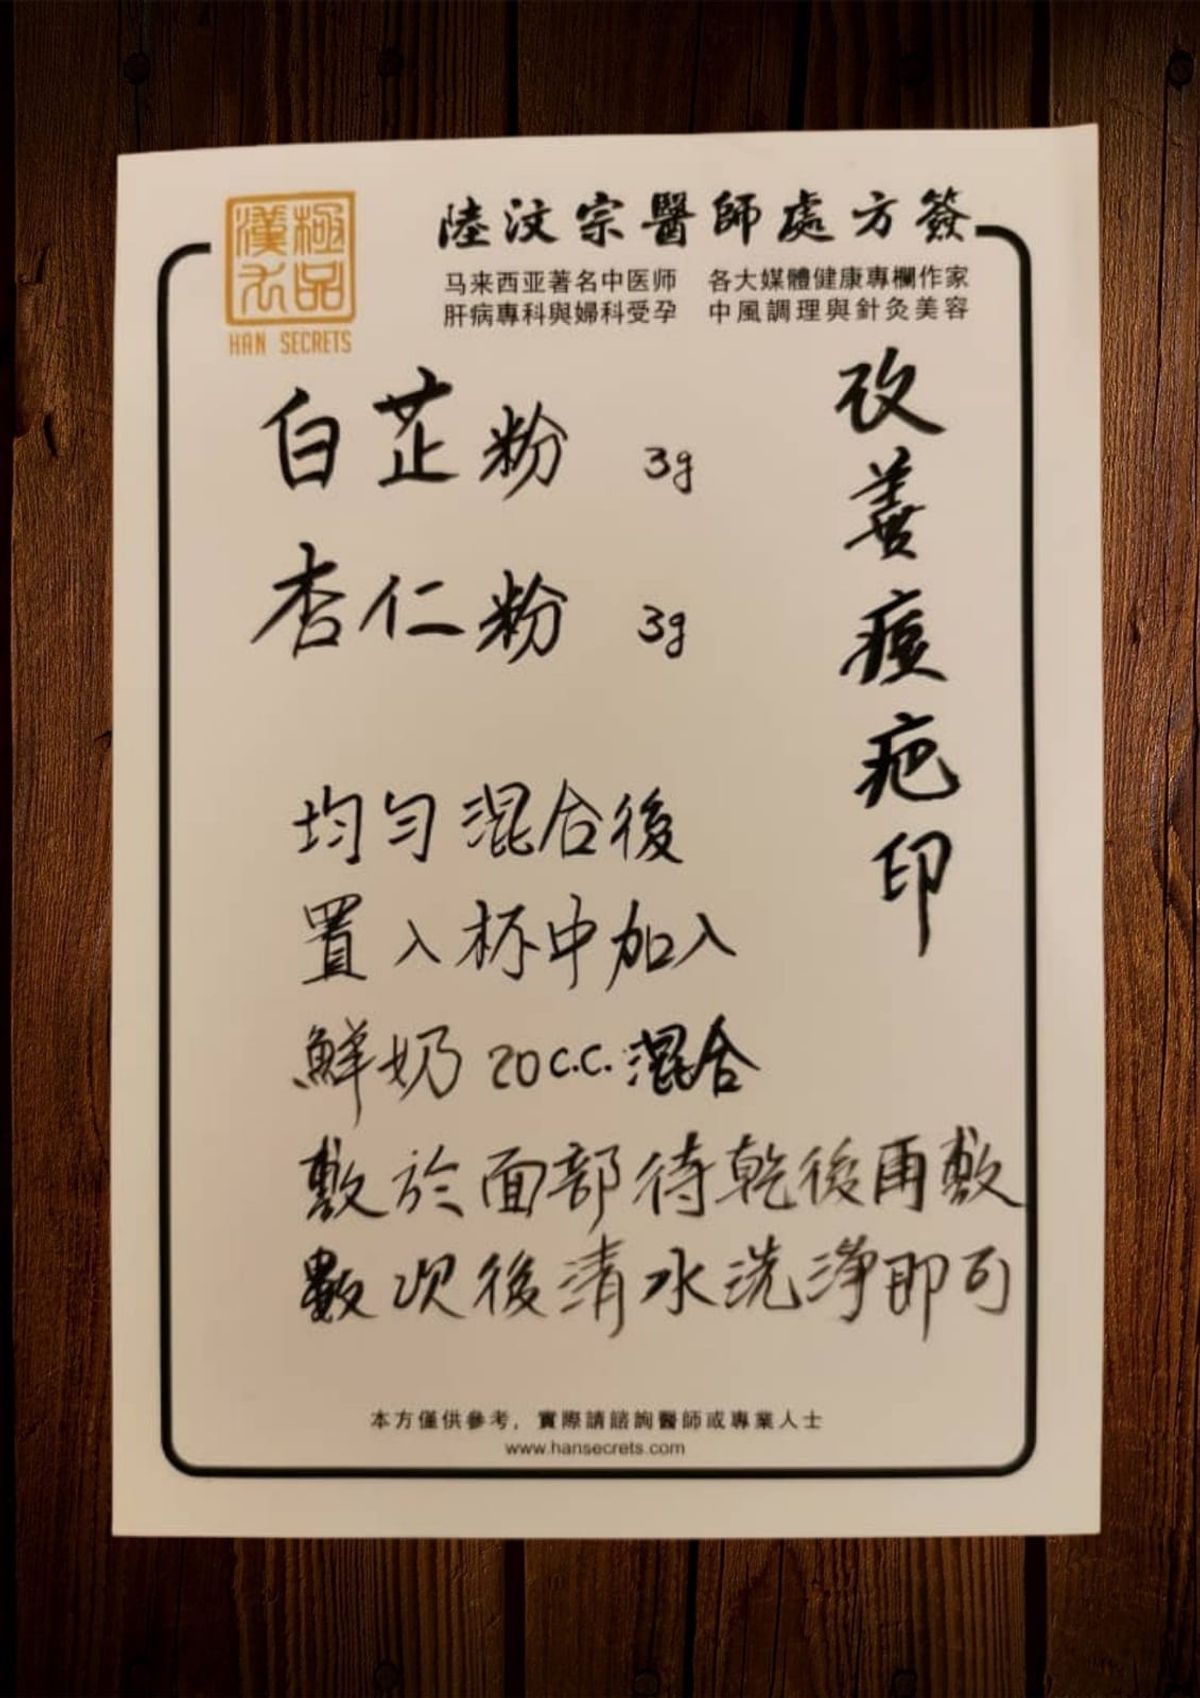 極品
漢方
HAN SECRETS
陸汶宗醫師處方簽
马来西亚著名中医师 各大媒體健康專欄作家
肝病專科與婦科受孕 中風調理與針灸美容
改善痘疤印
白芷粉 3g
杏仁粉 3g
均勻混合後
置入杯中加入
鮮奶 20 c.c. 混合
敷於面部待乾後再敷
數次後清水洗淨即可
本方僅供參考，實際請諮詢醫師或專業人士
www.hansecrets.com